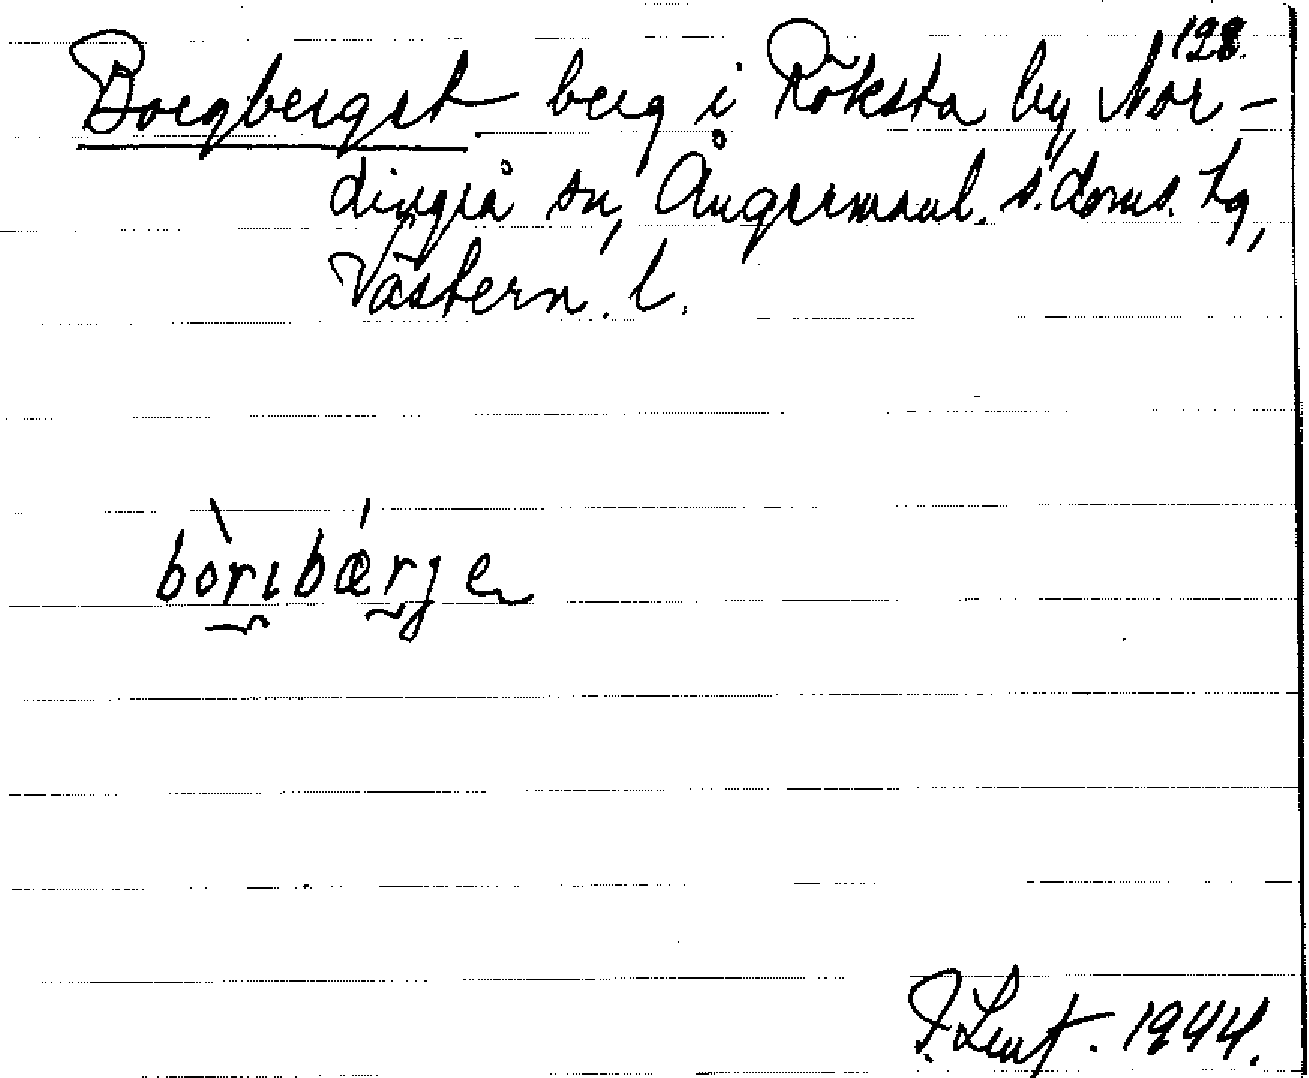 128.
Borgberget berg i Röksta by, Nor-
dingrå sn, Ångermanl. s. doms. hg,
Västern. l.
bòrıbǽrje
1944.